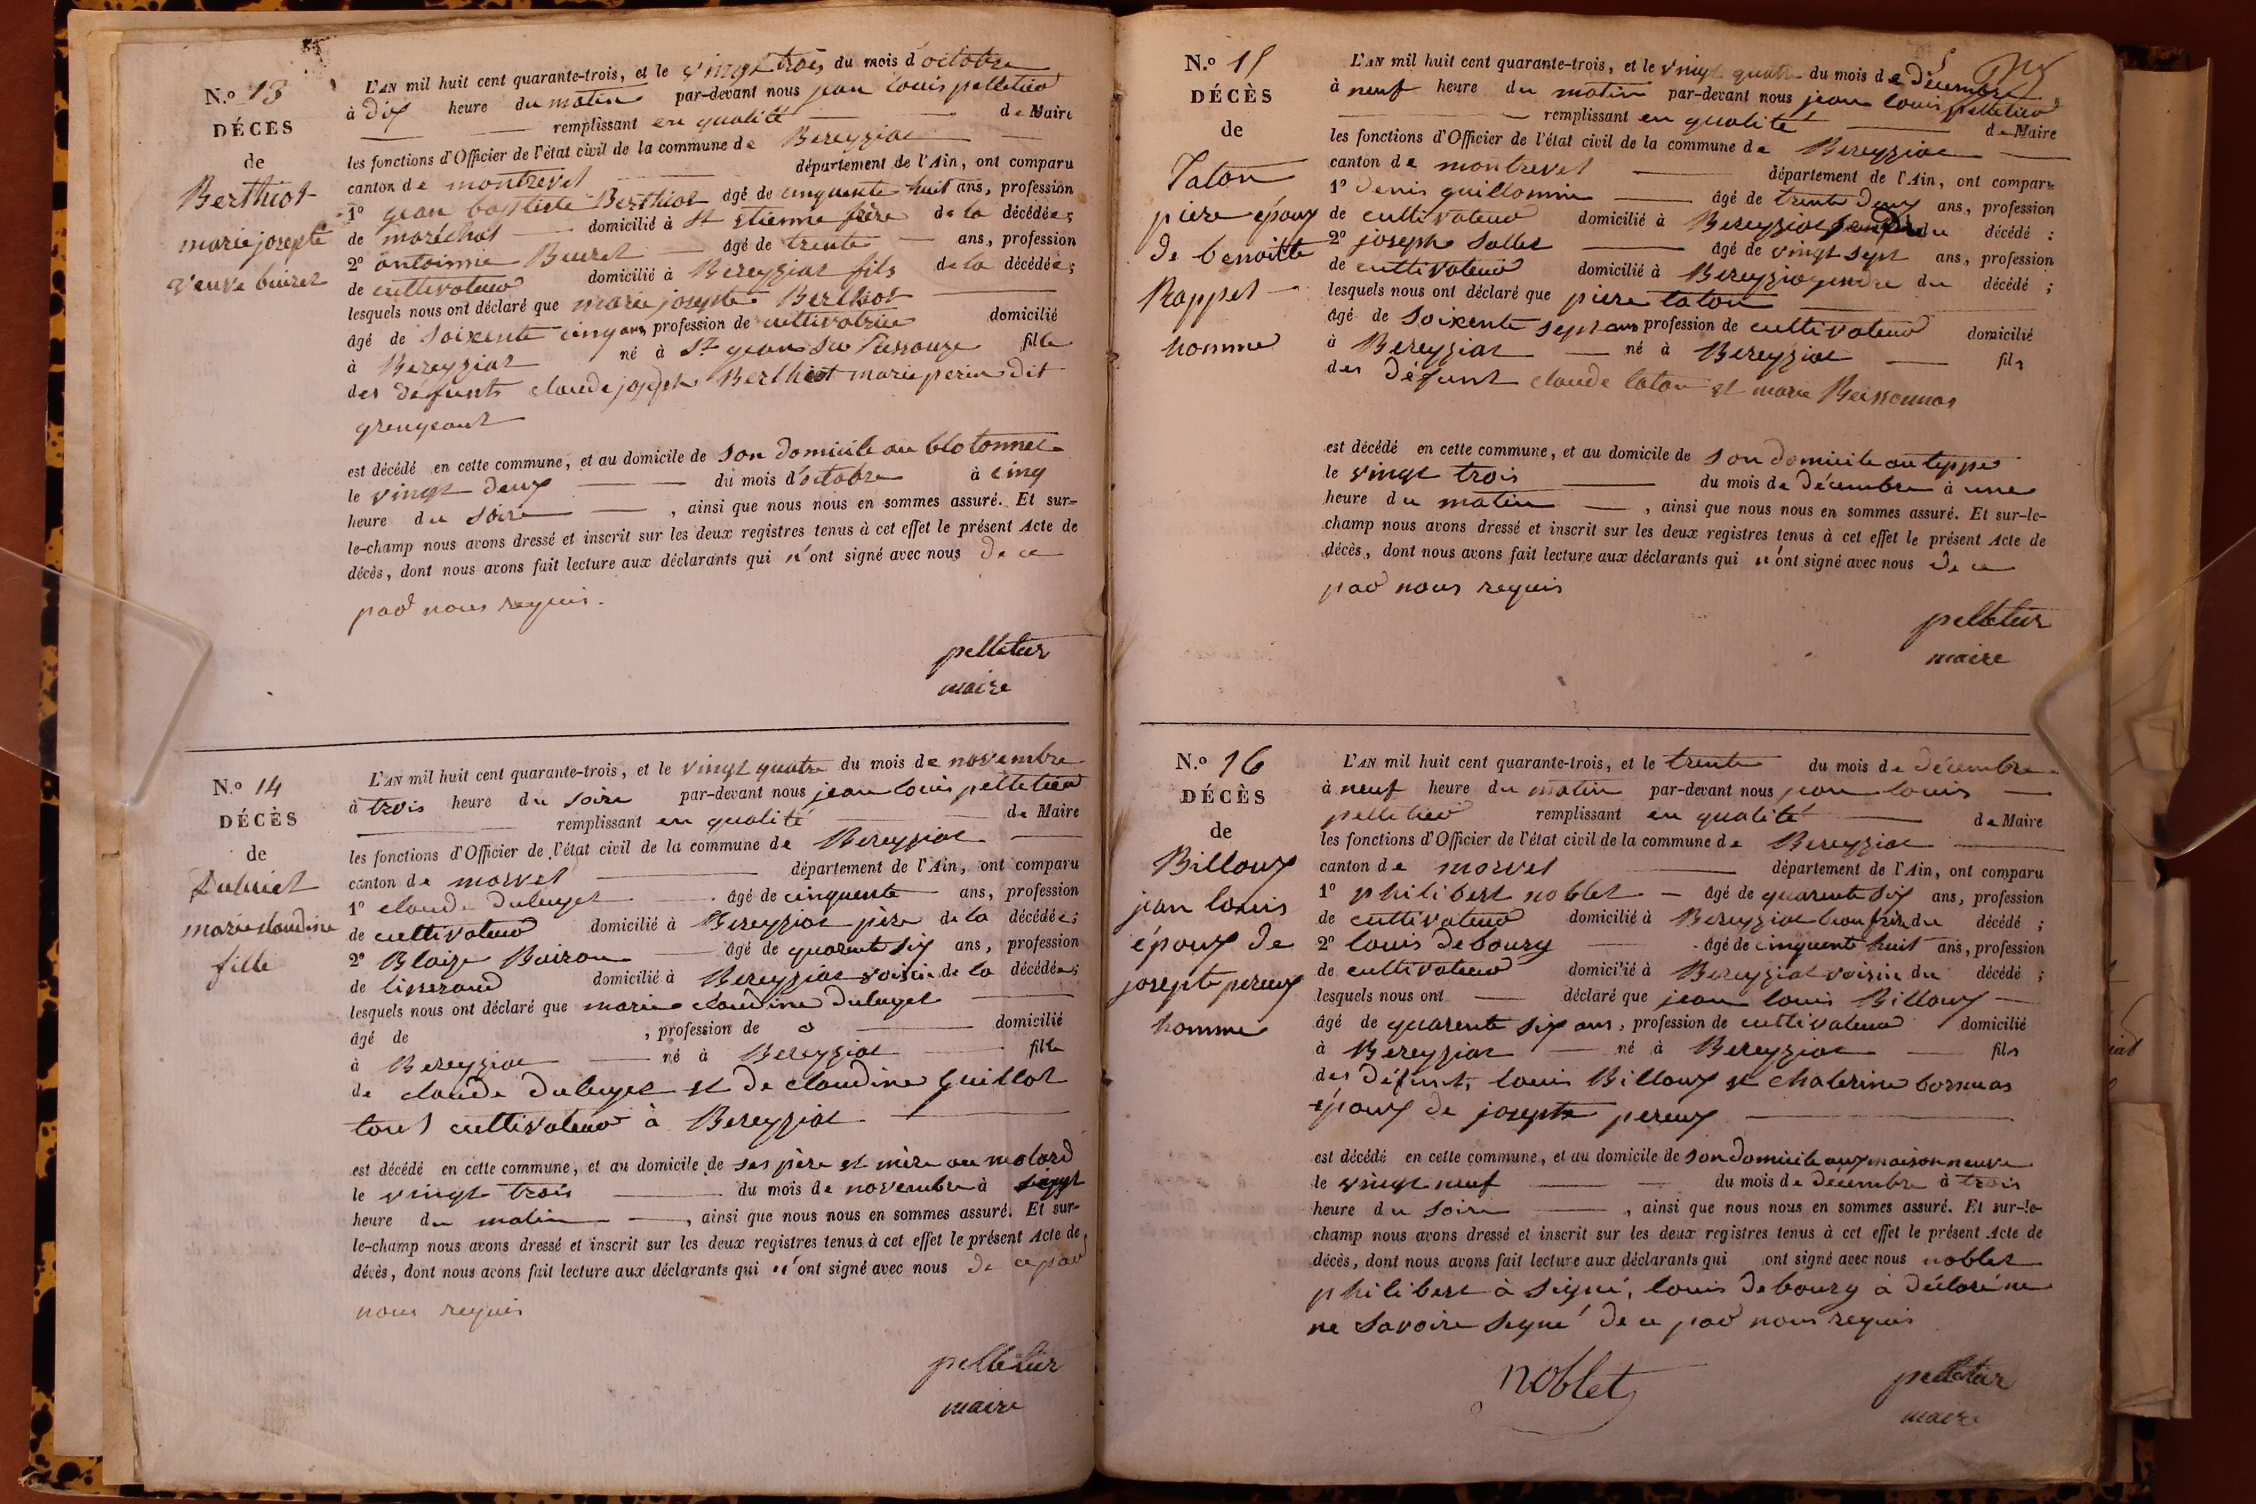 N.o 13
DÉCÈS
de
Berthiot
marie josephte
veuve buiret
L'AN mil huit cent quarante-trois, et le vingt trois du mois d'octobre
à dix heure du matin par-devant nous jean louis pelletier
remplissant en qualité de Maire
les fonctions d'Officier de l'état civil de la commune de Bereyziat
canton de montrevel département de l'Ain, ont comparu
1o jean baptiste Berthiot âgé de cinquente huit ans, profession
de maréchal domicilié à st Etienne frère de la décédée;
2o antoinne Buiret âgé de trente ans, profession
de cultivateur domicilié à Bereyziat fils de la décédée;
lesquels nous ont déclaré que marie josephte Berthiot
âgé de soixente cinq ans profession de cultivatrice domicilié
à Bereyziat né à St jean sur fille
des défunts claude joseph Berthiot marie perin dit
grengeant
est décédé en cette commune, et au domicile de son domicile au blotonnet
le vingt deux du mois d'octobre à cinq
heure du soire , ainsi que nous nous en sommes assuré. Et sur-
le-champ nous avons dressé et inscrit sur les deux registres tenus à cet effet le présent Acte de
décès, dont nous avons fait lecture aux déclarants qui n'ont signé avec nous de ce
par nous requis.
pelletier
maire
N.o 14
DÉCÈS
de
marie claudine
fille
L'AN mil huit cent quarante-trois, et le vingt quatre du mois de novembre
à trois heure du soire par-devant nous jean louis pelletier
remplissant en qualité de Maire
les fonctions d'Officier de l'état civil de la commune de Bereyziat
canton de morvel département de l'Ain, ont comparu
1o claude dubuyet âgé de cinquente ans, profession
de cultivateur domicilié à Bereyziat père de la décédée;
2o Blaize Boiron âgé de quarente six ans, profession
de tisserand domicilié à Bereyziat voisin de la décédée;
lesquels nous ont déclaré que marie claudine dubuyet
âgé de , profession de domicilié
à Bereyziat né à Bereyziat fille
de claude dubuyet et de claudine Guillot
tous cultivateur à Bereyziat
est décédé en cette commune, et au domicile de ses père et mère au molard
le vingt trois du mois de novembre à sept
heure du matin , ainsi que nous nous en sommes assuré. Et sur-
le-champ nous avons dressé et inscrit sur les deux registres tenus à cet effet le présent Acte de
décès, dont nous avons fait lecture aux déclarants qui n'ont signé avec nous de ce par
nous requis
pelletier
maire
N.o 15
DÉCÈS
de
Taton
piere époux
de benoitte
Rappet
homme
L'AN mil huit cent quarante-trois, et le vingt quatre du mois de décembre
à neuf heure du matin par-devant nous jean louis pelletier
remplissant en qualité de Maire
les fonctions d'Officier de l'état civil de la commune de Bereyziat
canton de montrevel département de l'Ain, ont comparu
1o denis guillomin âgé de trente deux ans, profession
de cultivateur domicilié à Bereyziat gendre du décédé :
2o joseph Sallet âgé de vingt sept ans, profession
de cultivateur domicilié à Bereyziat gendre du décédé ;
lesquels nous ont déclaré que piere taton
âgé de soixente sept ans profession de cultivateur domicilié
à Bereyziat né à Bereyziat fils
des défunt claude taton et marie
est décédé en cette commune, et au domicile de son domicile au teppe
le vingt trois du mois de décembre à une
heure du matin , ainsi que nous nous en sommes assuré. Et sur-le-
champ nous avons dressé et inscrit sur les deux registres tenus à cet effet le présent Acte de
décès, dont nous avons fait lecture aux déclarants qui n'ont signé avec nous de ce
par nous requis
pelletier
maire
N.o 16
DÉCÈS
de
Billoux
jean louis
époux de
josephte pereux
homme
L'AN mil huit cent quarante-trois, et le trente du mois de décembre
à neuf heure du matin par-devant nous jean louis
pelletier remplissant en qualité de Maire
les fonctions d'Officier de l'état civil de la commune de Bereyziat
canton de morvel département de l'Ain, ont comparu
1o philibert noblet âgé de quarente six ans, profession
de cultivateur domicilié à Bereyziat beau frère du décédé ;
2o louis debourg âgé de cinquente huit ans, profession
de cultivateur domicilié à Bereyziat voisin du décédé ;
lesquels nous ont déclaré que jean louis Billoux
âgé de quarente six ans, profession de cultivateur domicilié
à Bereyziat né à Bereyziat fils
des défunt, louis Billoux et chaterine
époux de josephte pereux
est décédé en cette commune, et au domicile de son domicile aux maison neuve
le vingt neuf du mois de décembre à trois
heure du soire , ainsi que nous nous en sommes assuré. Et sur-le-
champ nous avons dressé et inscrit sur les deux registres tenus à cet effet le présent Acte de
décès, dont nous avons fait lecture aux déclarants qui ont signé avec nous noblet
philibert à signé, louis debourg à déclaré ne
ne savoire signé de ce par nous requis
noblet
pelletier
maire